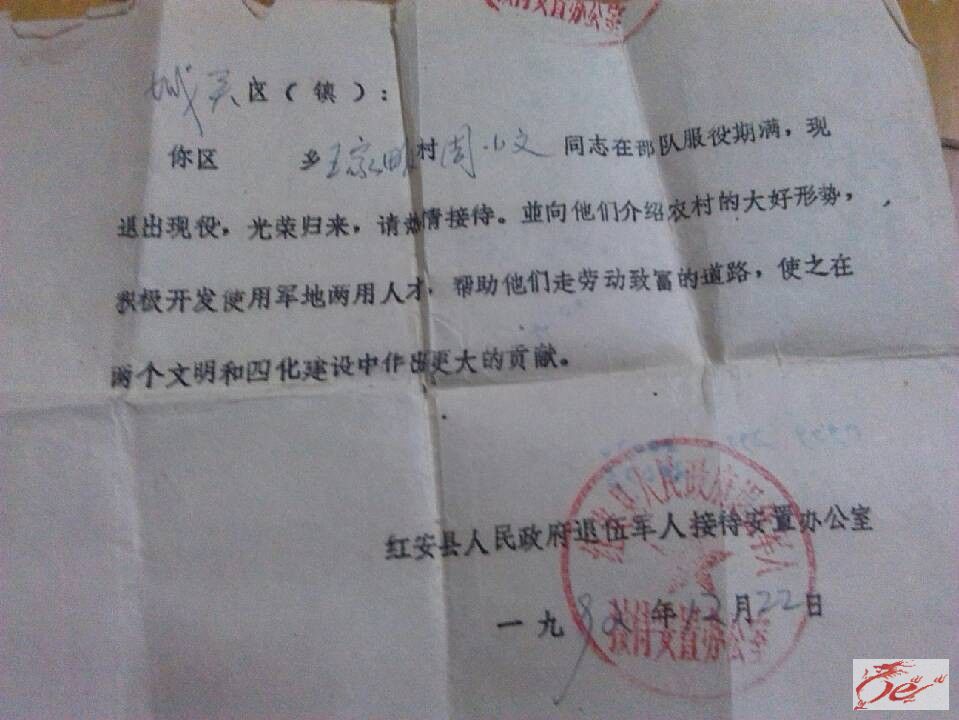 接待安置办公室
城关区（镇）：
你区 乡王家畈村周小文 同志在部队服役期满，现
退出现役，光荣归来，请热情接待。並向他们介绍农村的大好形势，
积极开发使用军地两用人才，帮助他们走劳动致富的道路，使之在
两个文明和四化建设中作出更大的贡献。
红安县人民政府退伍军人接待安置办公室
红安县人民政府退伍军人
接待安置办公室
一九8 年12月22日